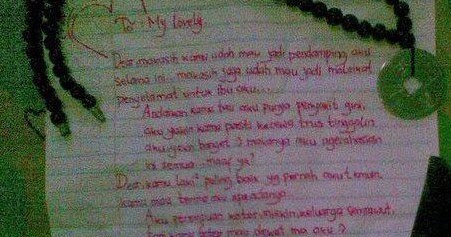 To : My lovely
Dear makasih kamu udah mau jadi pendamping aku
selama ini. makasih juga udah mau jadi malaikat
penyelamat untuk ibu aku...
Andaikan kamu tau aku punya penyakit gini,
aku yakin kamu pasti kecewa trus tinggalin
aku banget :) makanya aku
ini semua.. maaf ya!
Dear, kamu laki² paling baik yg pernah aku temuin
kamu mau terima aku apa adanya
Aku perempuan kotor, miskin, keluarga
mau dekat ma aku :)